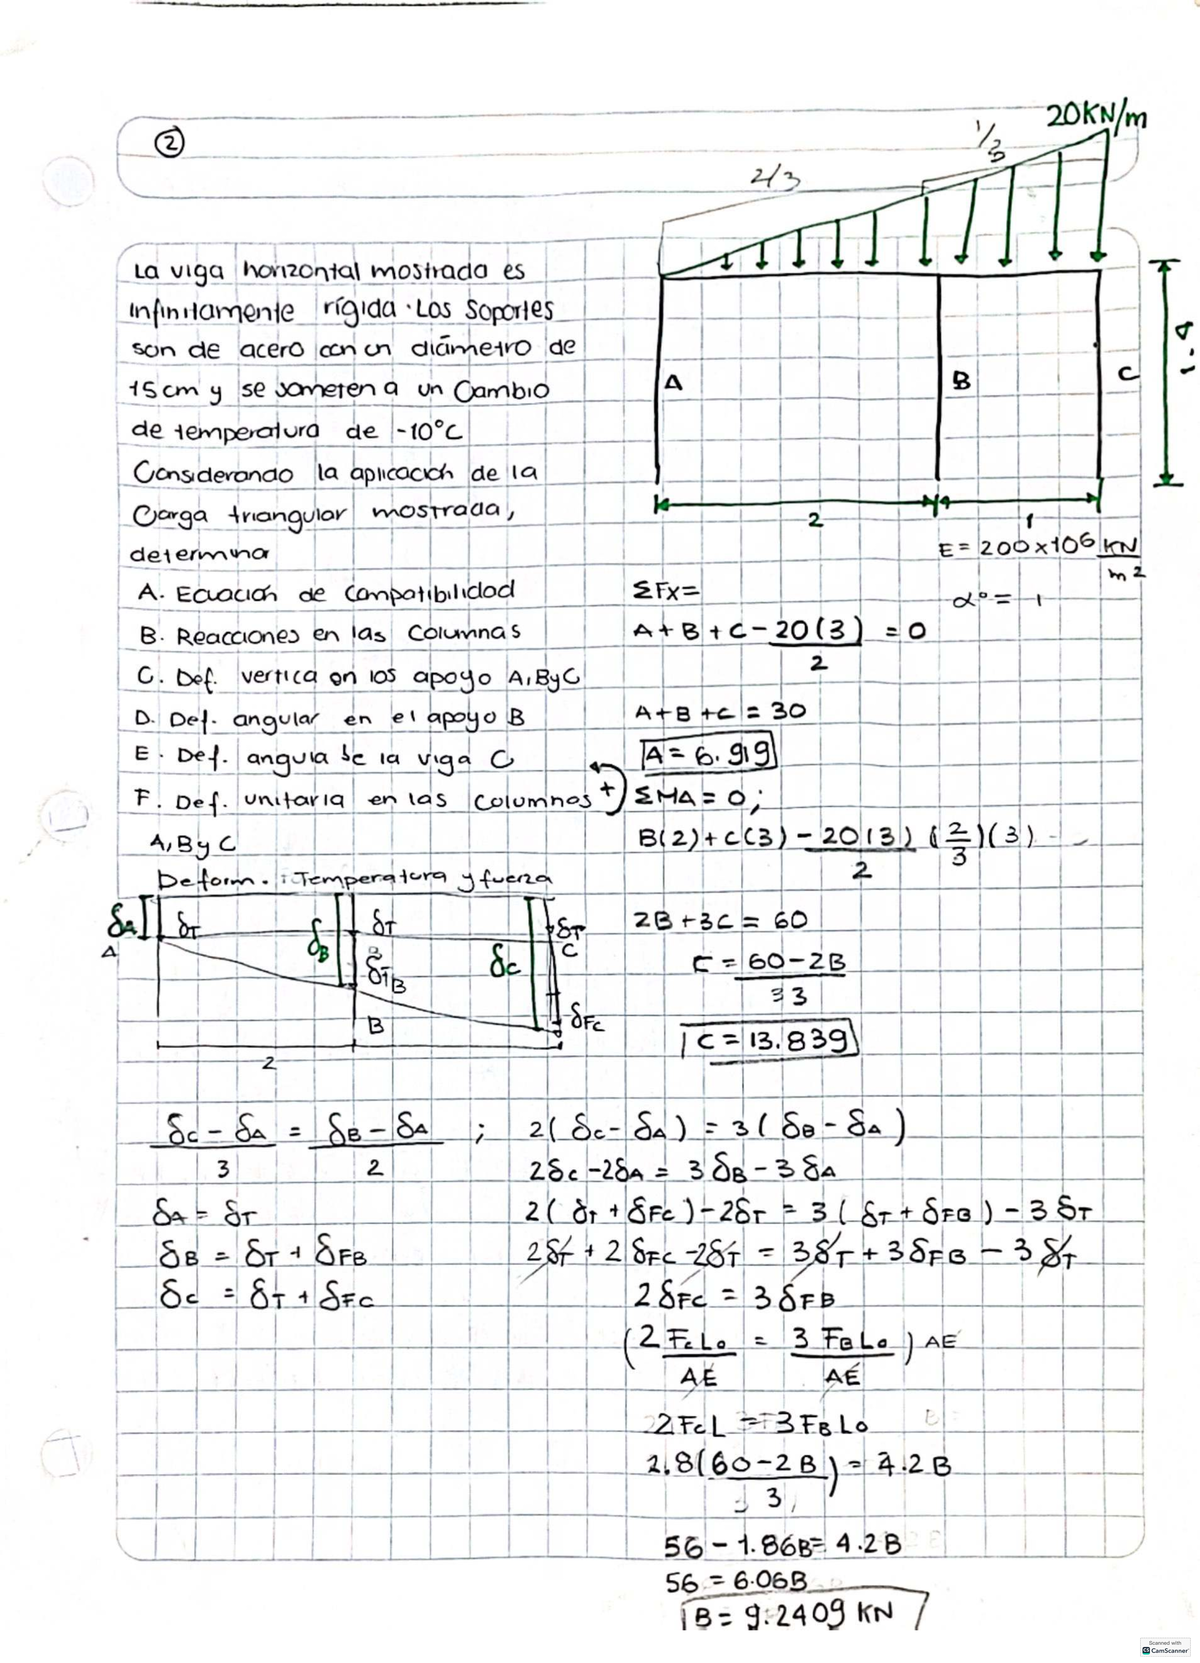 ②
20KN/m
1/3
2/3
La viga horizontal mostrada es
infinitamente rígida. Los soportes
son de acero con un diámetro de
15cm y se someten a un Cambio
de temperatura de -10°C
Considerando la aplicación de la
Carga triangular mostrada,
determina
A. Ecuación de Compatibilidad
B. Reacciones en las Columnas
C. Def. vertica en los apoyo A, B y C
D. Def. angular en el apoyo B
E. Def. angula de la viga C
F. Def. unitaria en las Columnas
A, B y C
A
B
C
1.4
2
1
E = 200x10⁶ KN/m²
α° = 1
ΣFx=
A + B + C - 20(3)/2 = 0
A+B+C = 30
A = 6.919
+) ΣMA = 0;
B(2) + C(3) - 20(3)/2 (2/3)(3)
2B + 3C = 60
C = 60-2B / 3
C = 13.839
Deform. : Temperatura y fuerza
δA δT δB δT δC δT
A C
δFB
B δFC
2
δC - δA / 3 = δB - δA / 2 ; 2(δC - δA) = 3(δB - δA)
2δC - 2δA = 3δB - 3δA
δA = δT 2(δT + δFC) - 2δT = 3(δT + δFB) - 3δT
δB = δT + δFB 2δT + 2δFC - 2δT = 3δT + 3δFB - 3δT
δC = δT + δFC 2δFC = 3δFB
(2 FcLo/AE = 3 FBLo/AE) AE
2FcL = 3FBLo
2.8(60-2B / 3) = 4.2B
56 - 1.86B = 4.2B
56 = 6.06B
B = 9.2409 KN
Scanned with
CamScanner